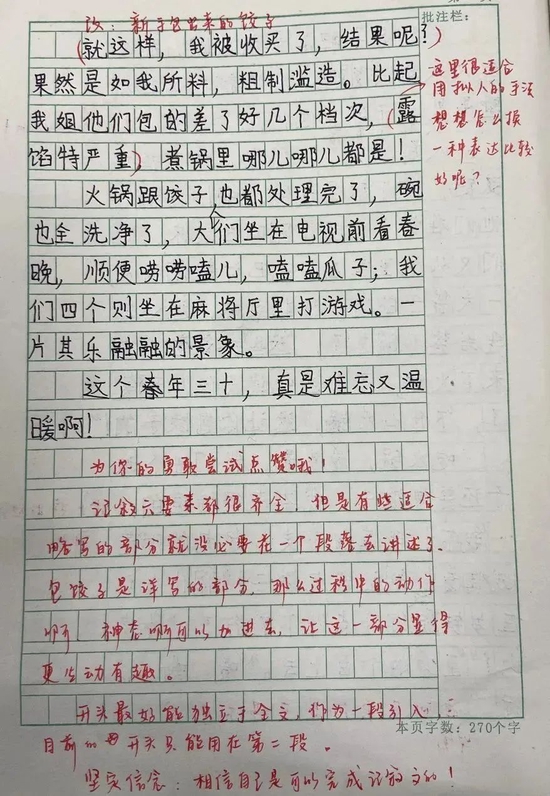 改：新手包出来的饺子
批注栏：
(就这样，我被收买了，结果呢？)
果然是如我所料，粗制滥造。比起
我姐他们包的差了好几个档次，(露
馅特严重)，煮锅里哪儿哪儿都是！
这里很适合
用拟人的手法
想想怎么换
一种表达比较
好呢？
火锅跟饺子也都处理完了，碗
也全洗净了，大们坐在电视前看春
晚，顺便唠唠嗑儿，嗑嗑瓜子；我
们四个则坐在麻将厅里打游戏。一
片其乐融融的景象。
这个春年三十，真是难忘又温
暖啊！
为你的勇敢尝试点赞哦！
记叙六要素都很齐全，但是有些适合
略写的部分就没必要花一个段落去讲述了。
包饺子是详写的部分，那么过程中的动作
啊 神态啊可以加进去，让这一部分显得
更生动有趣。
开头最好能独立于全文，作为一段引入
目前的开头只能用在第二段。
本页字数：270个字
坚定信念：相信自己是可以完成记叙文的！